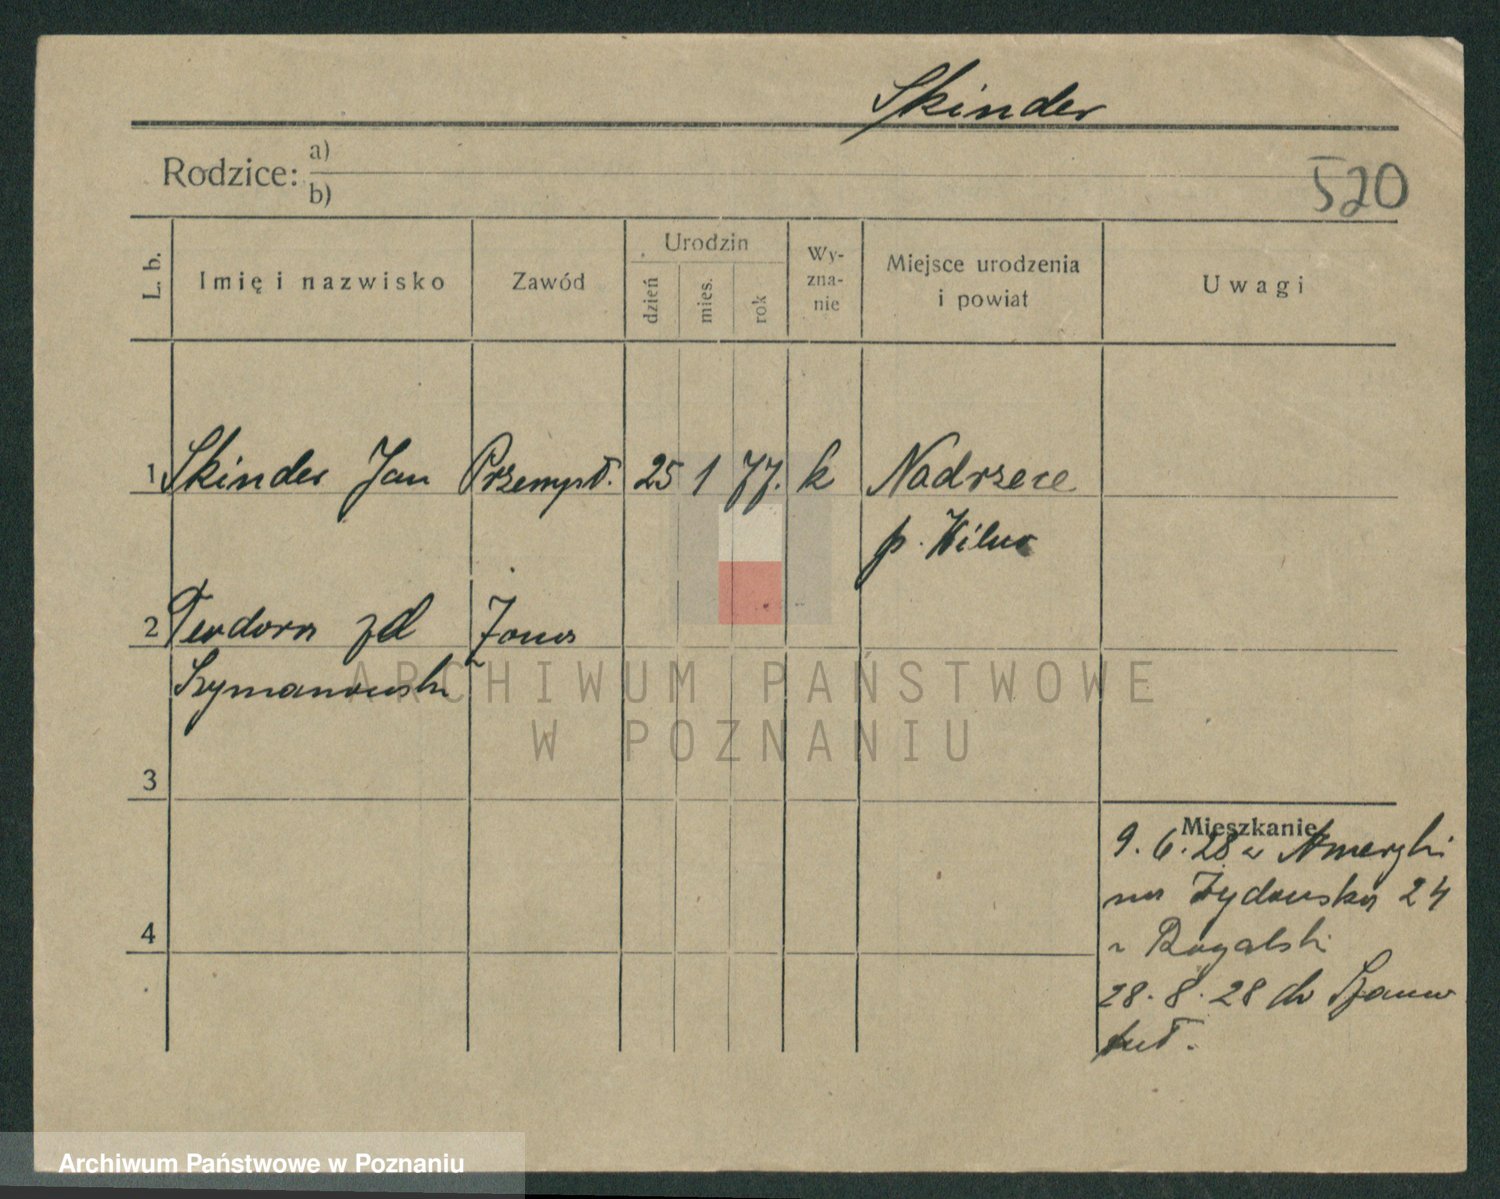 Skinder
Rodzice: a)
b)
520
L. b.
Imię i nazwisko
Zawód
Urodzin
dzień
mies.
rok
Wy-
zna-
nie
Miejsce urodzenia
i powiat
Uwagi
1 Skinder Jan Przemysł. 25 1 77. k Nadrzece
p. Wilno
2 Teodora zd Żona
Szymanowska
ARCHIWUM PAŃSTWOWE
W POZNANIU
3
Mieszkanie
9.6.28 z Ameryki
na Żydowska 24
Rogalski
4
28.8.28 do
Archiwum Państwowe w Poznaniu